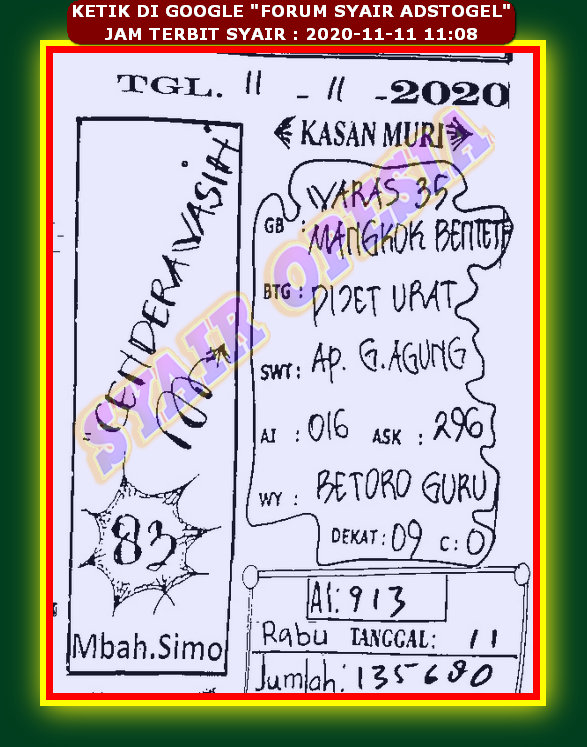 KETIK DI GOOGLE "FORUM SYAIR ADSTOGEL"
JAM TERBIT SYAIR : 2020-11-11 11:08
TGL. 11 - 11 - 2020
CENDERAWASIH
83
Mbah.Simo
KASAN MURI
GB : WARAS 35
MANGKOK BENTET
BTG : PIJET URAT
SWT : AP. G.AGUNG
AI : 016 ASK : 296
WY : BETORO GURU
DEKAT : 09 C : 0
AI: 913
Rabu TANGGAL: 11
Jumlah: 135680
SYAIR OPESIA